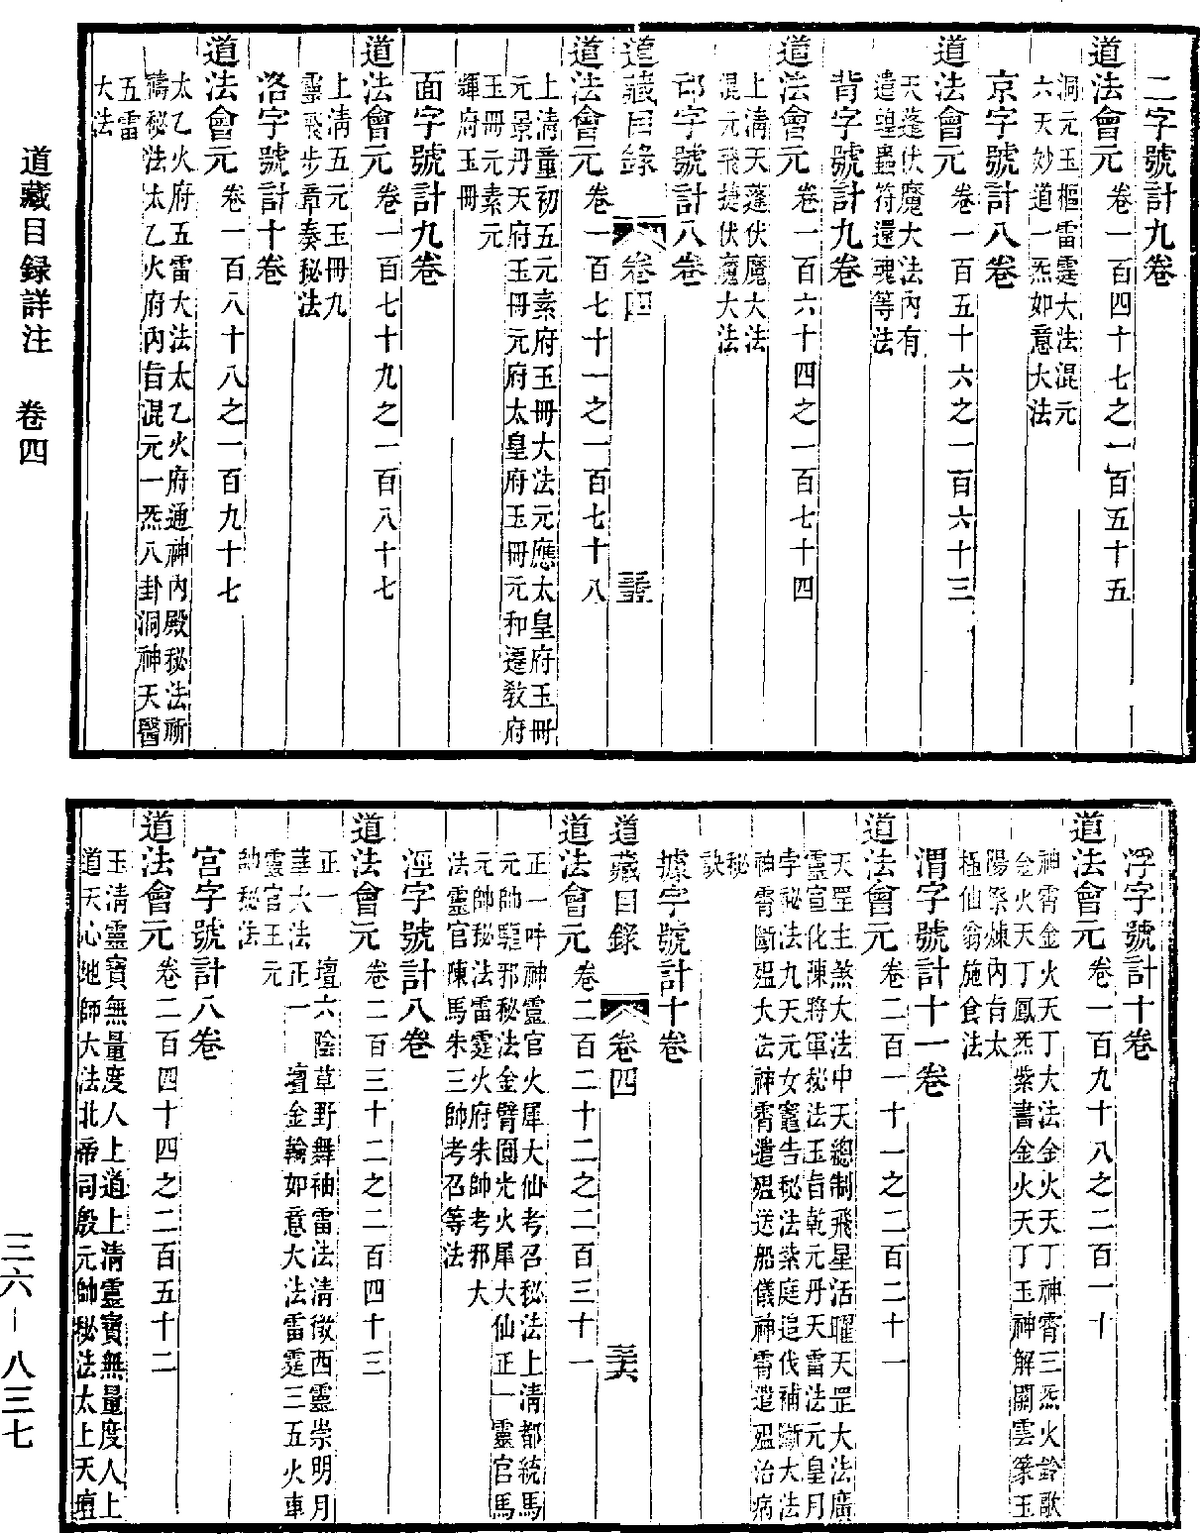 二字號計九卷
道法會元 卷一百四十七之一百五十五
洞元玉樞雷霆大法混元
六天妙道一炁如意大法
京字號計八卷
道法會元 卷一百五十六之一百六十三
天蓬伏魔大法內有
遣蝗蟲符還魂等法
背字號計九卷
道法會元 卷一百六十四之一百七十四
上清天蓬伏魔大法
混元飛捷伏魔大法
邙字號計八卷
道藏目錄 卷四
道法會元 卷一百七十一之一百七十八
上清童初五元素府玉冊大法元應太皇府玉冊
元景丹天府玉冊元府太皇府玉冊元和遷教府
玉冊元素元
輝府玉冊
面字號計九卷
道法會元 卷一百七十九之一百八十七
上清五元玉冊九
靈飛步章奏秘法
洛字號計十卷
道法會元 卷一百八十八之一百九十七
太乙火府五雷大法太乙火府通神內殿秘法祈
禱秘法太乙火府內旨混元一炁八卦洞神天醫
五雷
大法
道藏目録詳注 卷四
浮字號計十卷
道法會元 卷一百九十八之二百一十
神霄金火天丁大法金火天丁神霄三炁火鈴歌
金火天丁鳳炁紫書金火天丁玉神解關雲篆玉
陽祭煉內旨太
極仙翁施食法
渭字號計十一卷
道法會元 卷二百一十一之二百二十一
天罡主煞大法中天總制飛星活曜天罡大法廣
靈宣化陳將軍秘法玉旨乾元丹天雷法元皇月
孛秘法九天元女竈告秘法紫庭追伐補斷大法
神霄斷瘟大法神霄遣瘟送船儀神霄遣瘟治病
秘
訣
據字號計十卷
道藏目錄 卷四
道法會元 卷二百二十二之二百三十一
正一吽神靈官火犀大仙考召秘法上清都統馬
元帥驅邪秘法金臂圓光火犀大仙正一靈官馬
元帥秘法雷霆火府朱帥考邪大
法靈官陳馬朱三帥考召等法
涇字號計八卷
道法會元 卷二百三十二之二百四十三
正一 壇六陰草野舞袖雷法清微西靈崇明月
華大法正一 壇金輪如意大法雷霆三五火車
靈官王元
帥秘法
宮字號計八卷
道法會元 卷二百四十四之二百五十二
玉清靈寶無量度人上道上清靈寶無量度人上
道天心地師大法北帝伺殷元帥秘法太上天壇
三六－八三七